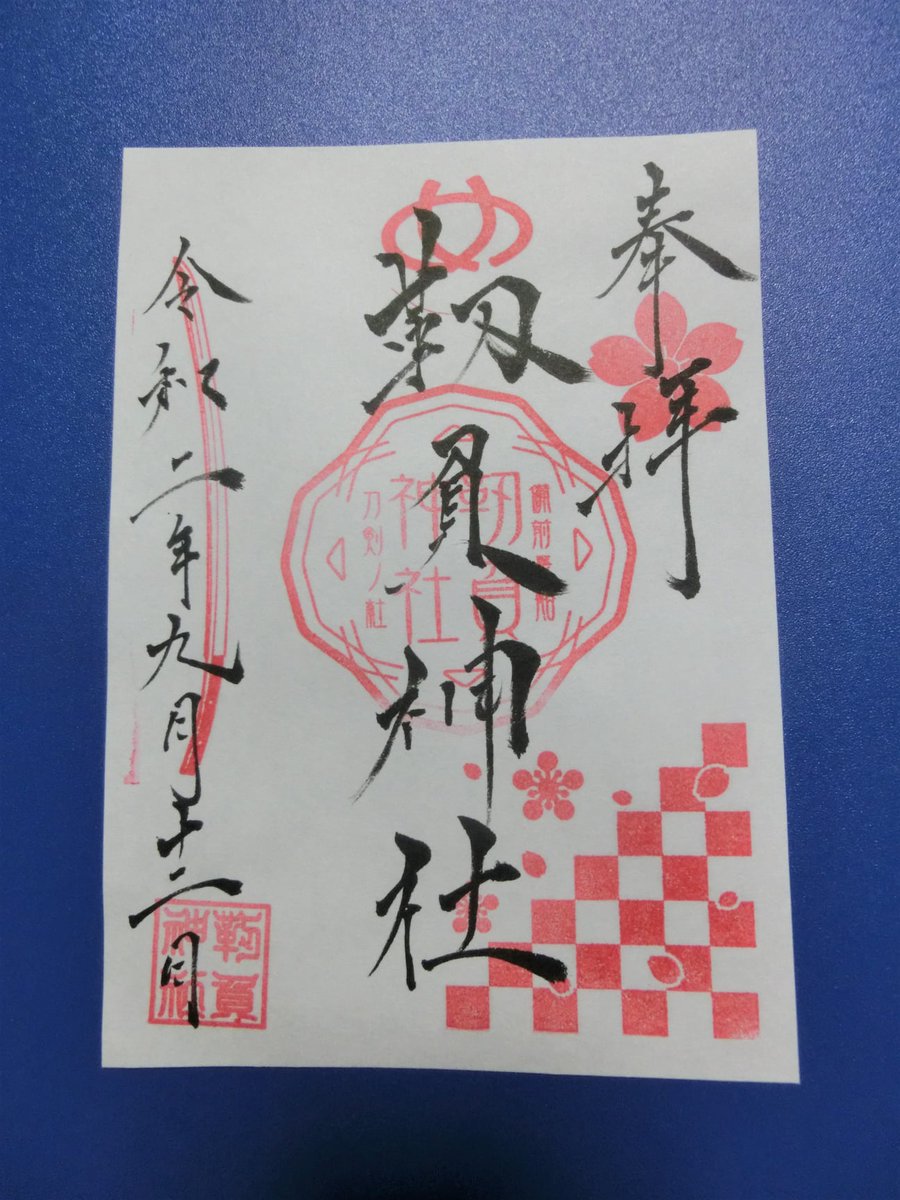 奉拝
靱負神社
備前長船
靱負
神社
刀剣ノ社
令和二年九月十二日
靱負
神社
め